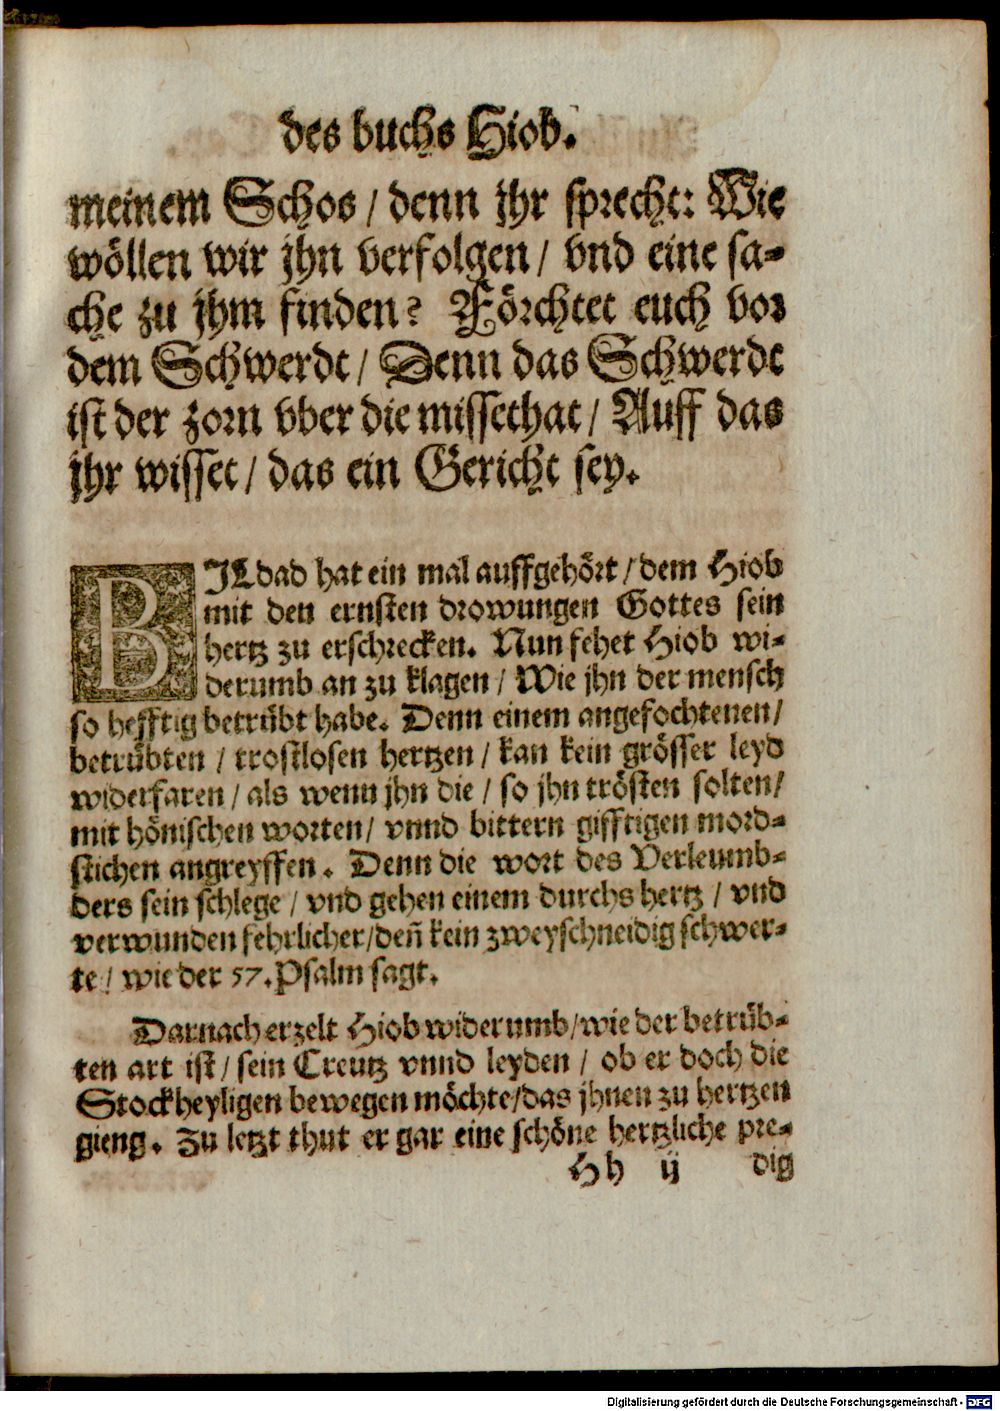 des buchs Hiob.
meinem Schos / denn jhr sprecht: Wie
wöllen wir jhn verfolgen / vnd eine sa-
che zu jhm finden? Förchtet euch vor
dem Schwerdt / Denn das Schwerdt
ist der zorn vber die missethat / Auff das
jhr wisset / das ein Gericht sey.
BILdad hat ein mal auffgehört / dem Hiob
mit den ernsten drowungen Gottes sein
hertz zu erschrecken. Nun fehet Hiob wi-
derumb an zu klagen / Wie jhn der mensch
so hefftig betrübt habe. Denn einem angefochtenen /
betrübten / trostlosen hertzen / kan kein grösser leyd
widerfaren / als wenn jhn die / so jhn trösten solten /
mit hönischen worten / vnnd bittern gifftigen mord-
stichen angreyffen. Denn die wort des Verleumb-
ders sein schlege / vnd gehen einem durchs hertz / vnd
verwunden fehrlicher / deñ kein zweyschneidig schwer-
te / wie der 57. Psalm sagt.
Darnach erzelt Hiob widerumb / wie der betrüb-
ten art ist / sein Creutz vnnd leyden / ob er doch die
Stockheyligen bewegen möchte / das jhnen zu hertzen
gieng. Zu letzt thut er gar eine schöne hertzliche pre-
Hh ij dig
Digitalisierung gefördert durch die Deutsche Forschungsgemeinschaft - DFG